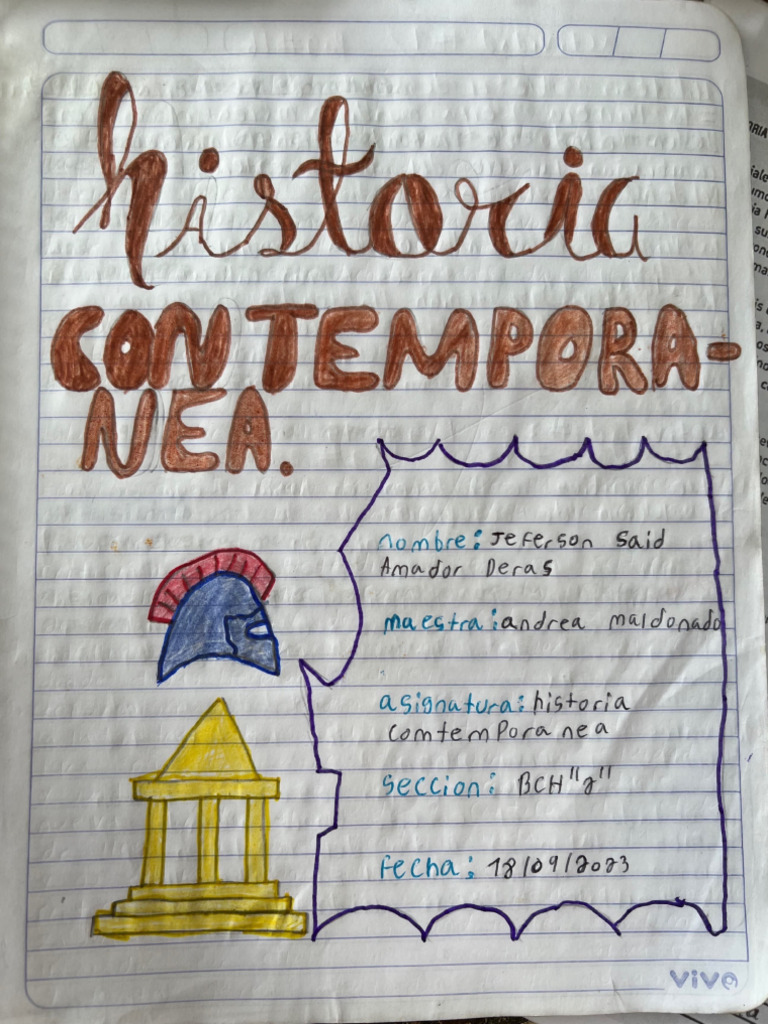 historia
CONTEMPORA-
NEA.
nombre: Jeferson Said
Amador Deras
maestra: andrea maldonado
asignatura: historia
comtemporanea
seccion: BCH "2"
fecha: 18/09/2023
vivo